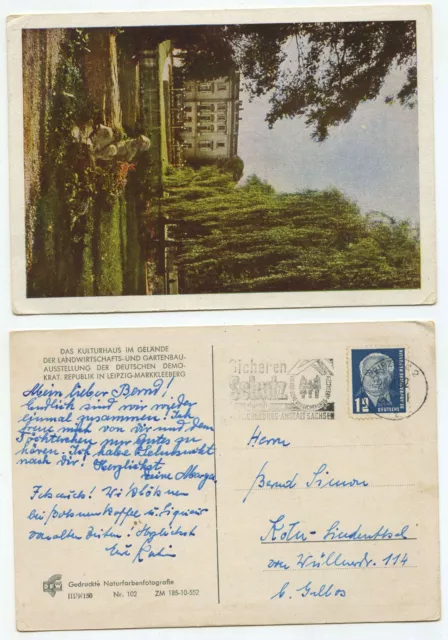 DAS KULTURHAUS IM GELÄNDE
DER LANDWIRTSCHAFTS-UND GARTENBAU-
AUSSTELLUNG DER DEUTSCHEN DEMO-
KRAT. REPUBLIK IN LEIPZIG-MARKKLEEBERG
Sicheren
Schutz
SACHSEN
12
DEUTSCHE
Mein lieber Bernd!
Endlich sind wir wieder
einmal zusammen. Ich
freue mich von Dir und dem
nur Gutes zu
hören. Ich habe Sehnsucht
nach Dir! Herzlichst
Deine
Ich auch! Wir
bei Bohnenkaffee
alten Zeiten! Herzlichst
Herrn
Bernd Simon
Köln-Lindenthal
von 114
b.
Gedruckte Naturfarbenfotografie
III/9/150 Nr. 102 ZM 185-10-552